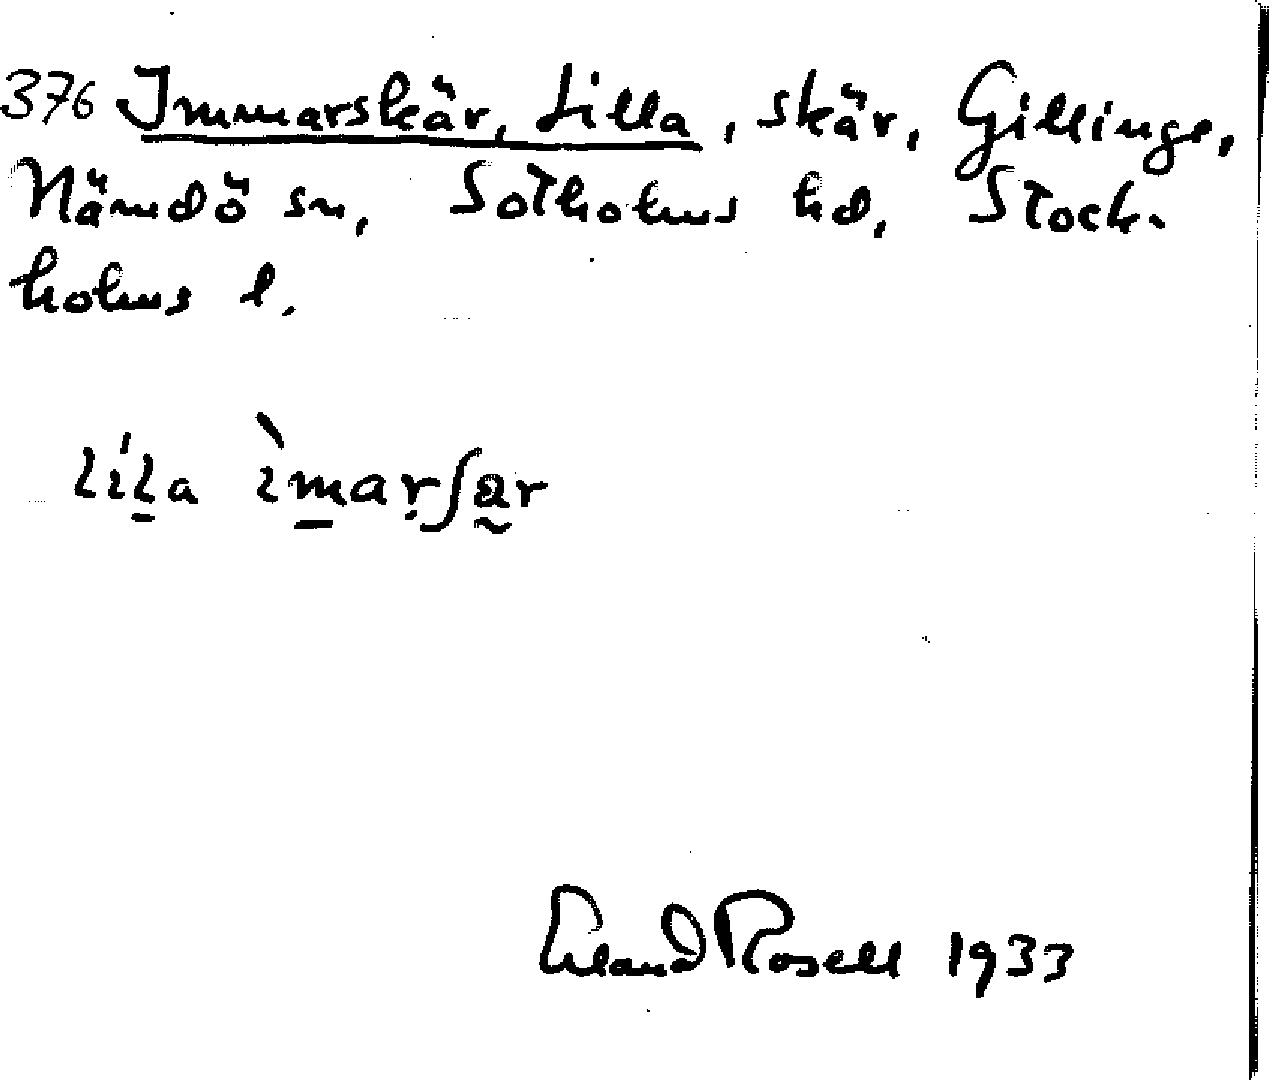 376 Immarskär, Lilla, skär, Gillinge,
Nämdö sn, Sotholms hd, Stock-
holms l.
líḻa ìm̱arʃa̰r
Erland Rosell 1933